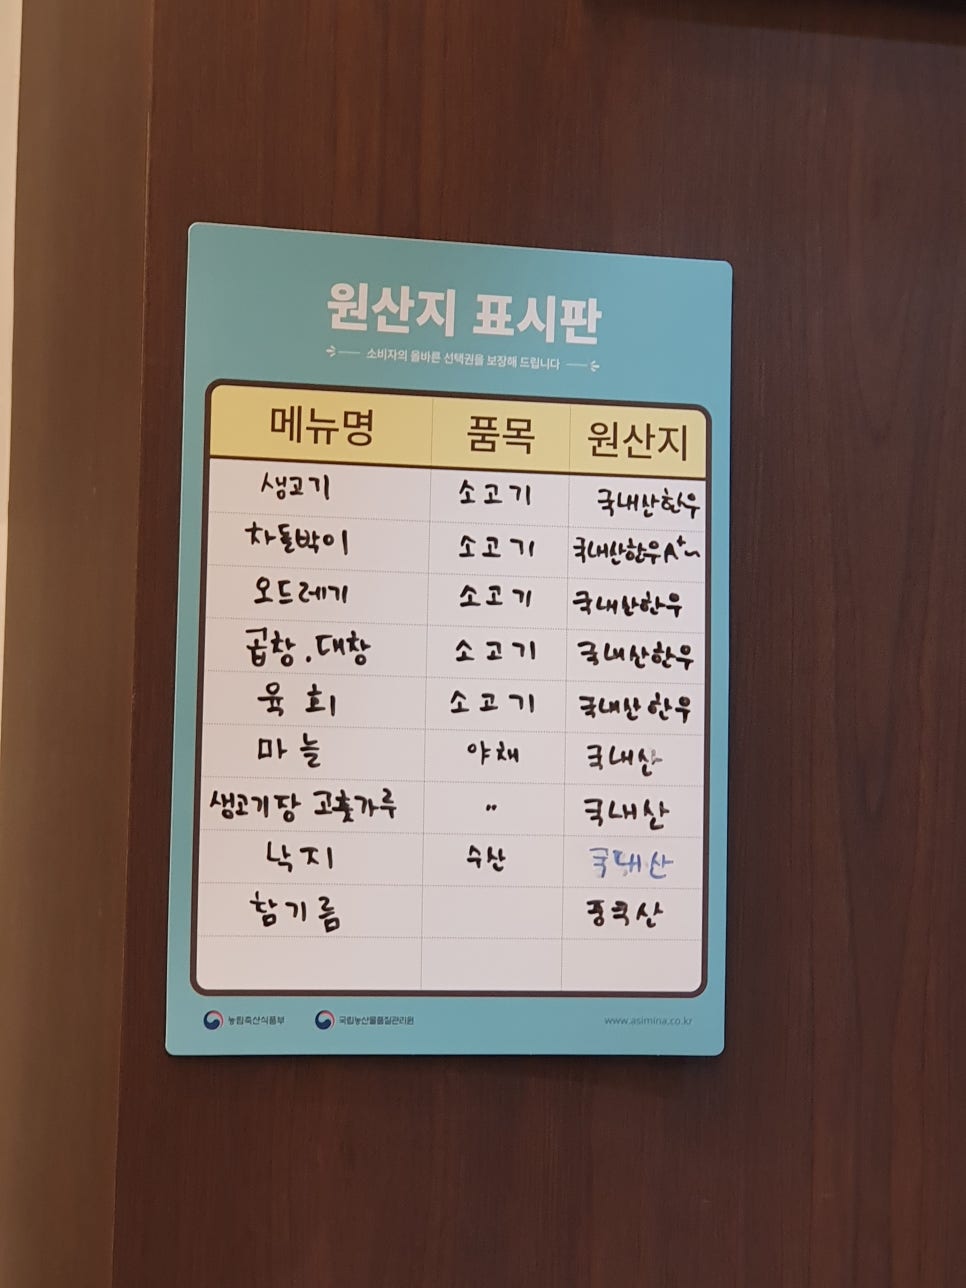 원산지 표시판
소비자의 올바른 선택권을 보장해 드립니다
메뉴명 품목 원산지
생고기 소고기 국내산한우
차돌박이 소고기 국내산한우A⁺~
오드레기 소고기 국내산한우
곱창.대창 소고기 국내산한우
육회 소고기 국내산한우
마늘 야채 국내산
생고기장 고춧가루 〃 국내산
낙지 수산 국내산
참기름 중국산
농림축산식품부 국립농산물품질관리원 www.asimina.co.kr